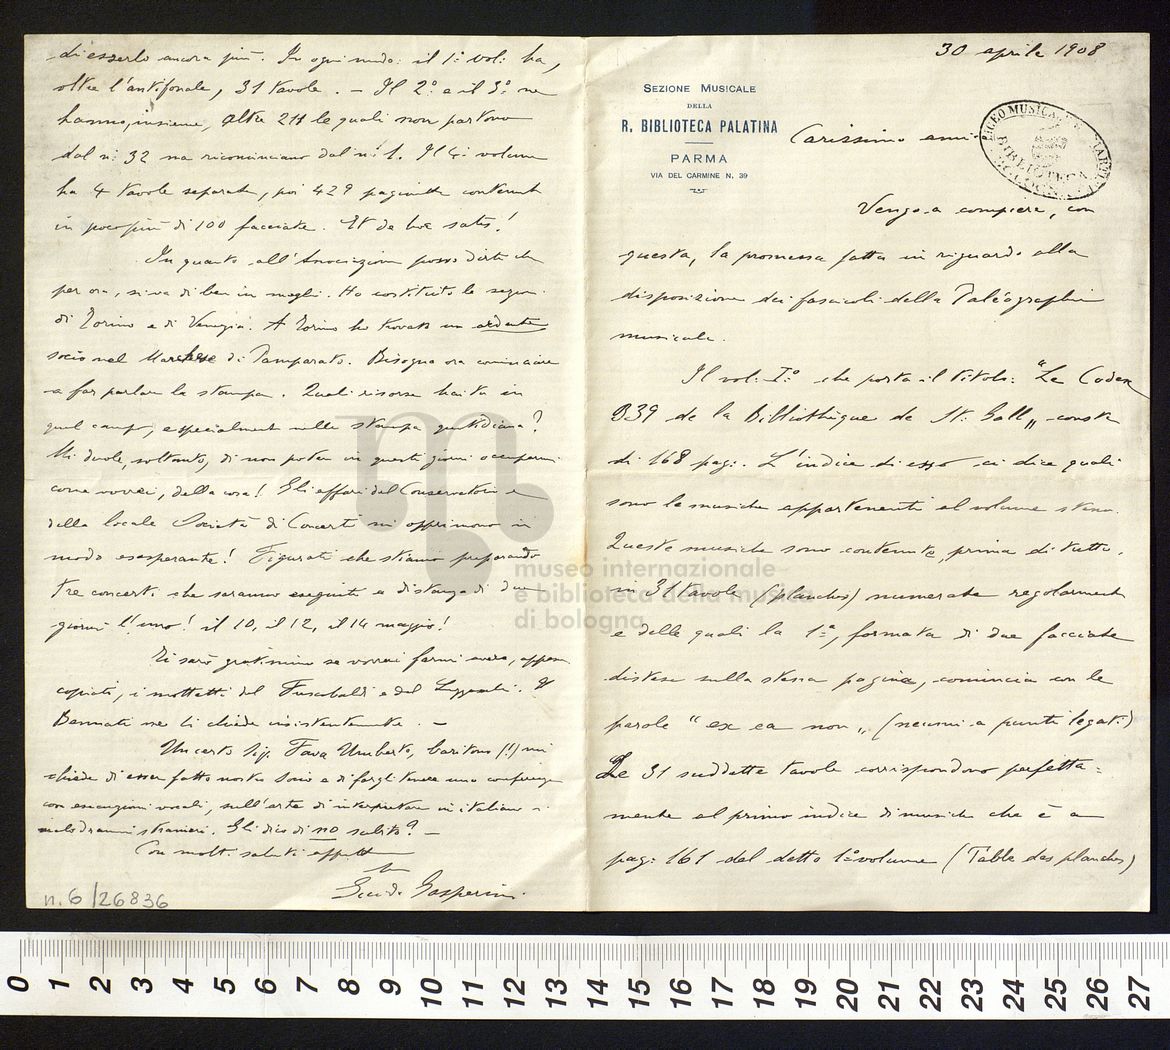 30 aprile 1908
SEZIONE MUSICALE
DELLA
R. BIBLIOTECA PALATINA
PARMA
VIA DEL CARMINE N. 39
LICEO MUSICALE
BIBLIOTECA
Carissimo ami
Vengo a compiere, con
questa, la promessa fatta in riguardo alla
disposizione dei fascicoli della Paléographie
musicale.
Il vol. I.º che porta il titolo: "Le Codex
339 de la Bibliothèque de St. Gall„ consta
di 168 pag:. L'indice di esso ci dice quali
sono le musiche appartenenti al volume stesso.
Queste musiche sono contenute, prima di tutto,
in 31 tavole (planches) numerate regolarmente
e delle quali la 1ª, formata di due facciate
distese sulla stessa pagina, comincia con le
parole "ex ea non„ (neumi a punti legati)
Le 31 suddette tavole corrispondono perfetta=
mente al primo indice di musiche che è a
pag: 161 del detto 1º volume (Table des planches)
di esserlo ancora più. In ogni modo: il 1º vol: ha,
oltre l'antifonale, 31 tavole. — Il 2º e il 3º ne
hanno, insieme, altre 211 le quali non partono
dal nº 32 ma ricominciano dal nº 1. Il 4º volume
ha 4 tavole separate, poi 429 paginette contenute
in poco più di 100 facciate. Et de hoc satis!
In quanto all'Associazione posso dirti che
per ora, si va di bene in meglio. Ho costituito le sezioni
di Torino e di Venezia. A Torino ho trovato un ardente
socio nel Marchese di Pamparato. Bisogna ora cominciare
a far parlare la stampa. Quali risorse hai tu in
quel campo, e specialmente nella stampa quotidiana?
Mi duole, soltanto, di non poter in questi giorni occuparmi
come vorrei, della cosa! Gli affari del Conservatorio e
della locale Società di Concerti mi opprimono in
modo esasperante! Figurati che stiamo preparando
tre concerti che saranno eseguiti a distanza di due
giorni l'uno! il 10, il 12, il 14 maggio!
Ti sarò gratissimo se vorrai farmi avere, appena
copiati, i mottetti del Frescobaldi e del Luzzaschi. Il
Bennati me li chiede insistentemente. —
Un certo Sig. Fava Umberto, baritono (!) mi
chiede di esser fatto nostro socio e di fargli tenere una conferenza
con esecuzioni vocali, sull'arte di interpretare in italiano i
melodrammi stranieri. Gli dico di no subito? —
Con molti saluti affett
tuo
Guido Gasperini
n. 6/26836
museo internazionale
e biblioteca della musica
di bologna
0 1 2 3 4 5 6 7 8 9 10 11 12 13 14 15 16 17 18 19 20 21 22 23 24 25 26 27